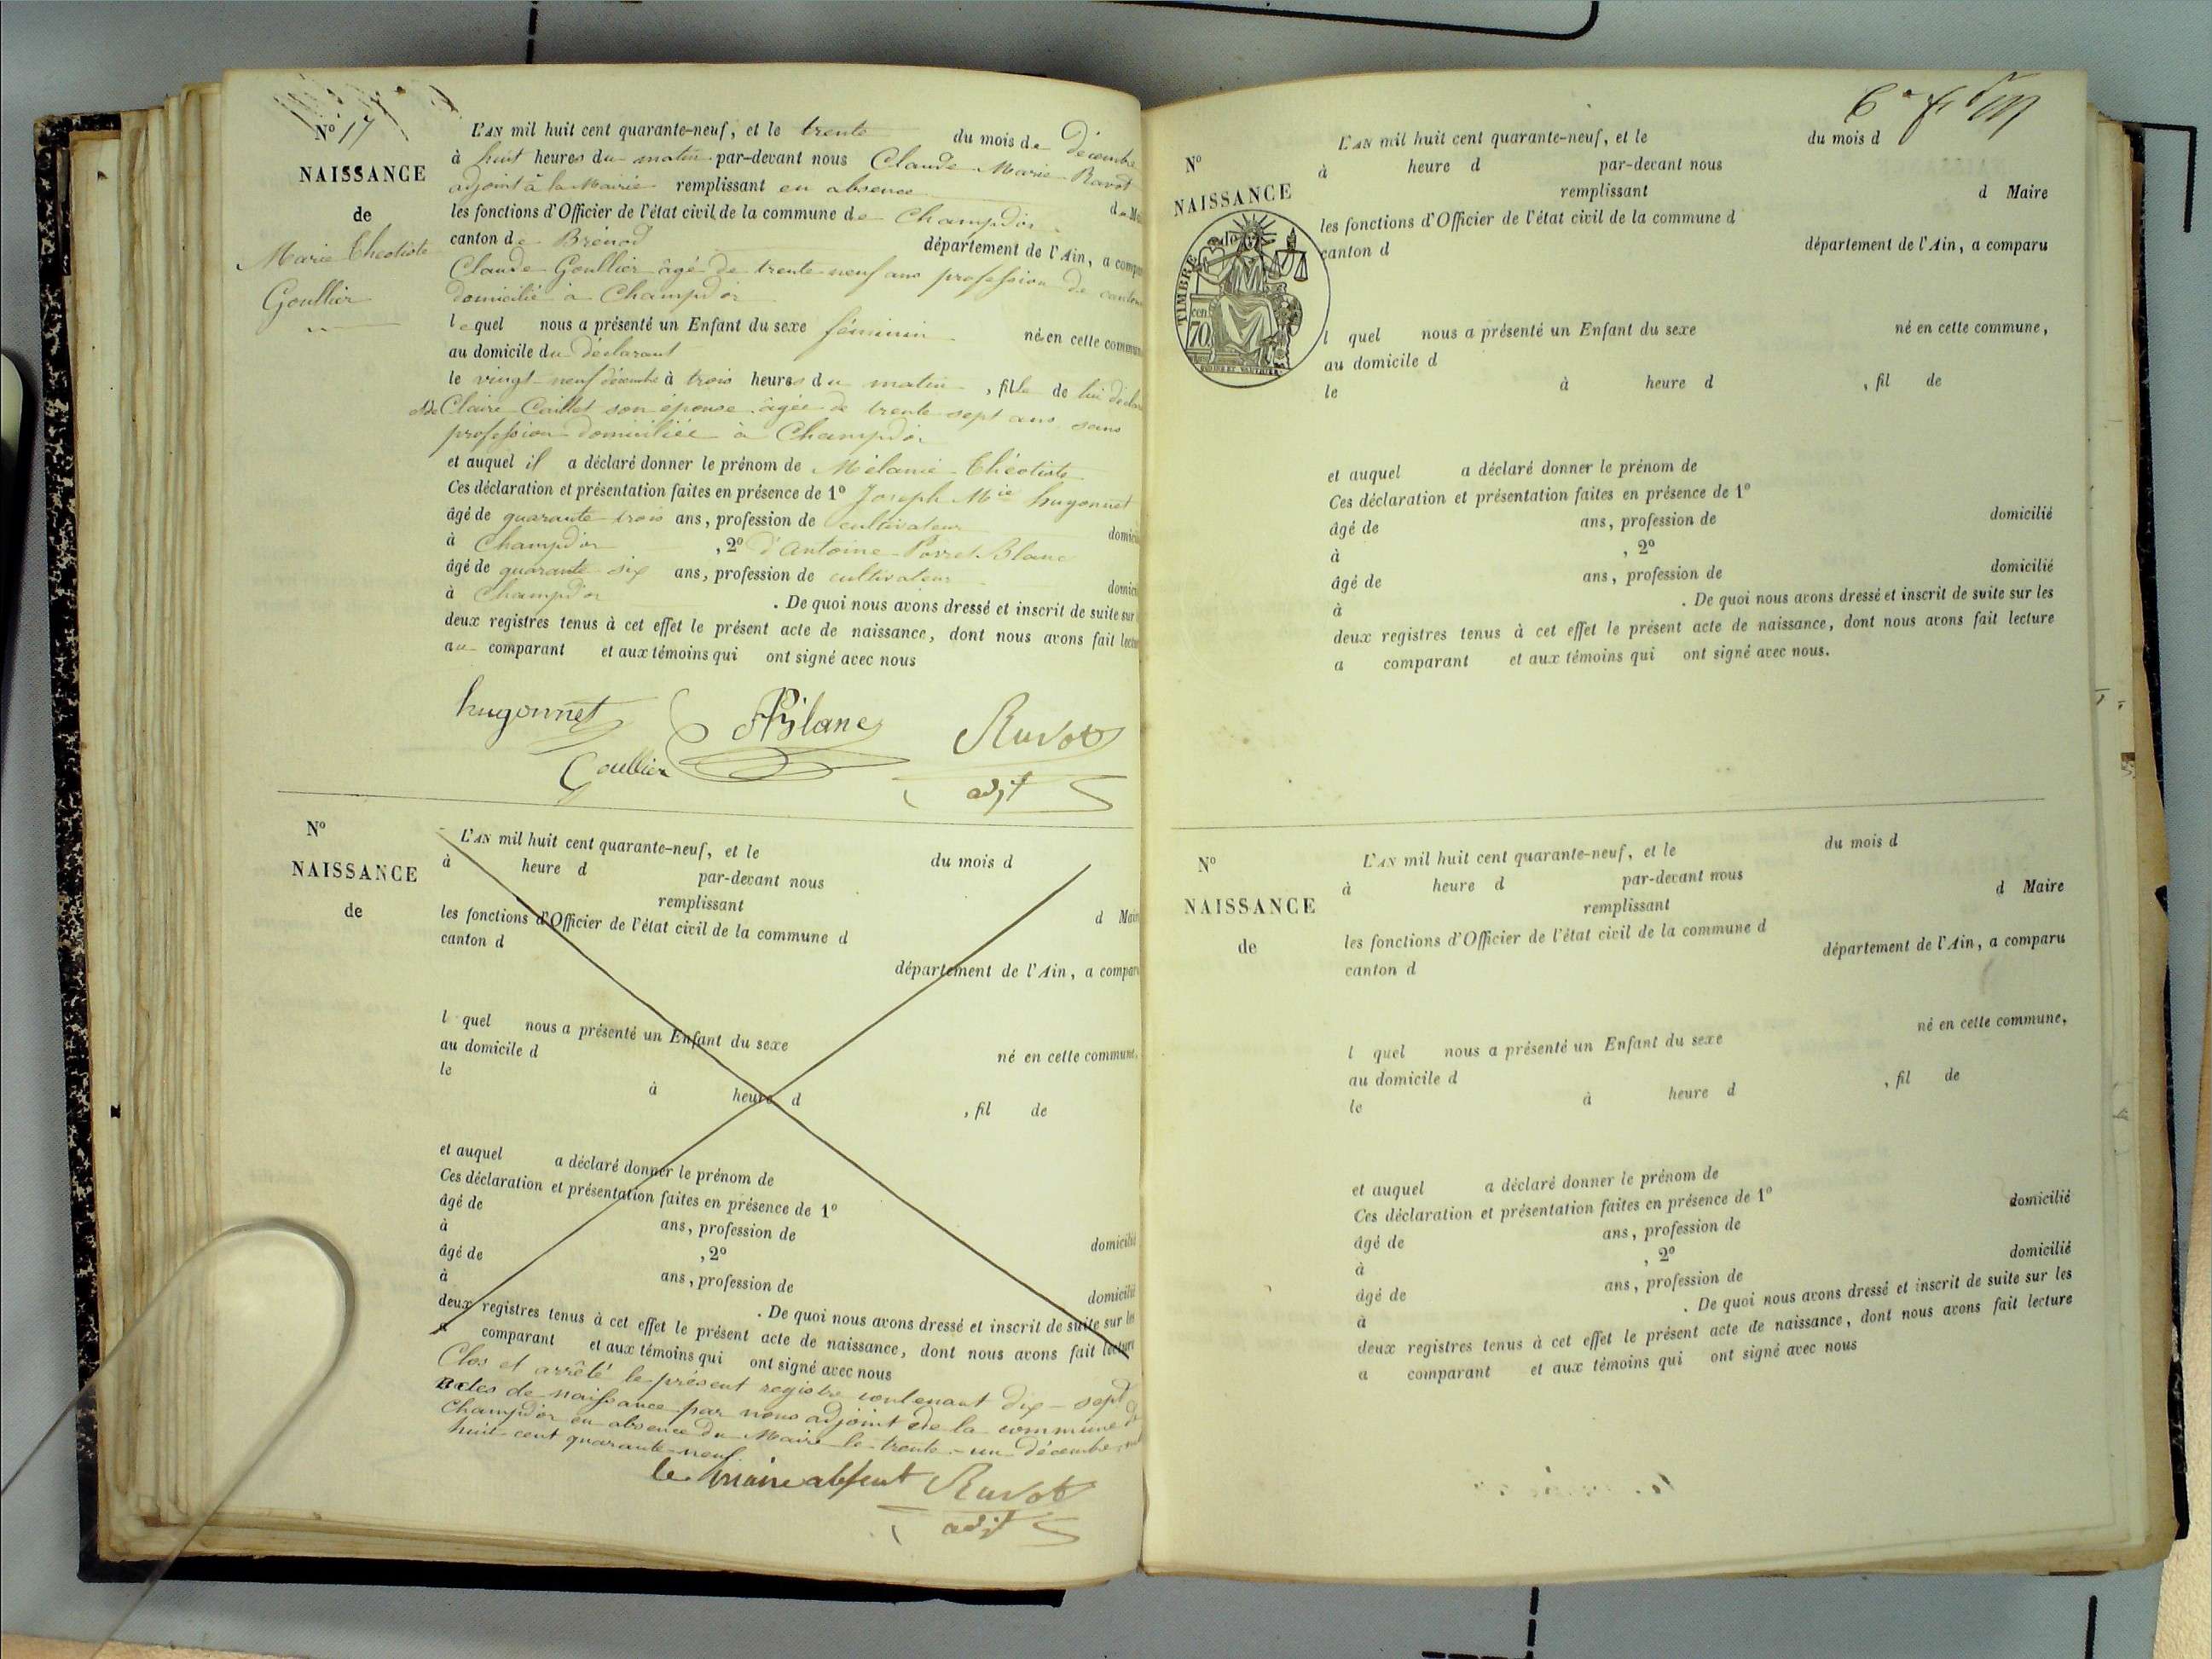 Nº 17
NAISSANCE
de
Marie Théotiste
Goullier
L'AN mil huit cent quarante-neuf, et le trente du mois de Décembre
à huit heures du matin par-devant nous Claude Marie Ravot
adjoint à la Mairie remplissant en absence du Mai
les fonctions d'Officier de l'état civil de la commune de Champdor
canton de Brénod département de l'Ain, a compa
Claude Goullier âgé de trente neuf ans profession de
domicilié à Champdor
lequel nous a présenté un Enfant du sexe féminin né en cette commun
au domicile du déclarant
le vingt-neuf décembre à trois heures du matin, fille de lui déclar
et de Claire Caillet son épouse âgée de trente sept ans sans
profession domiciliée à Champdor
et auquel il a déclaré donner le prénom de Mélanie Théotiste
Ces déclaration et présentation faites en présence de 1º Joseph Mie hugonnet
âgé de quarante trois ans, profession de cultivateur domicili
à Champdor, 2º d'Antoine Porret Blanc
âgé de quarante six ans, profession de cultivateur domici
à Champdor. De quoi nous avons dressé et inscrit de suite sur
deux registres tenus à cet effet le présent acte de naissance, dont nous avons fait lectu
au comparant et aux témoins qui ont signé avec nous
hugonnet PBlanc Ravot
Goullier adjt
Nº
NAISSANCE
de
L'AN mil huit cent quarante-neuf, et le du mois d
à heure d par-devant nous
remplissant d Maire
les fonctions d'Officier de l'état civil de la commune d
canton d
département de l'Ain, a comparu
l quel nous a présenté un Enfant du sexe né en cette commune,
au domicile d
le à heure d , fil de
et auquel a déclaré donner le prénom de
Ces déclaration et présentation faites en présence de 1º
âgé de ans, profession de domicilié
à , 2º
âgé de ans, profession de domicilié
à . De quoi nous avons dressé et inscrit de suite sur les
deux registres tenus à cet effet le présent acte de naissance, dont nous avons fait lecture
a comparant et aux témoins qui ont signé avec nous
Clos et arrêté le présent registre contenant dix-sept
actes de naissance par nous adjoint de la commune de
Champdor en absence du Maire le trente-un décembre mil
huit cent quarante-neuf.
le maire absent Ravot
adjt
Nº
NAISSANCE
de
TIMBRE
70 cen
L'AN mil huit cent quarante-neuf, et le du mois d
à heure d par-devant nous
remplissant d Maire
les fonctions d'Officier de l'état civil de la commune d
canton d département de l'Ain, a comparu
l quel nous a présenté un Enfant du sexe né en cette commune,
au domicile d
le à heure d , fil de
et auquel a déclaré donner le prénom de
Ces déclaration et présentation faites en présence de 1º
âgé de ans, profession de domicilié
à , 2º
âgé de ans, profession de domicilié
à . De quoi nous avons dressé et inscrit de suite sur les
deux registres tenus à cet effet le présent acte de naissance, dont nous avons fait lecture
a comparant et aux témoins qui ont signé avec nous.
Nº
NAISSANCE
de
L'AN mil huit cent quarante-neuf, et le du mois d
à heure d par-devant nous
remplissant d Maire
les fonctions d'Officier de l'état civil de la commune d
canton d département de l'Ain, a comparu
l quel nous a présenté un Enfant du sexe né en cette commune,
au domicile d
le à heure d , fil de
et auquel a déclaré donner le prénom de
Ces déclaration et présentation faites en présence de 1º
âgé de ans, profession de domicilié
à , 2º
âgé de ans, profession de domicilié
à . De quoi nous avons dressé et inscrit de suite sur les
deux registres tenus à cet effet le présent acte de naissance, dont nous avons fait lecture
a comparant et aux témoins qui ont signé avec nous